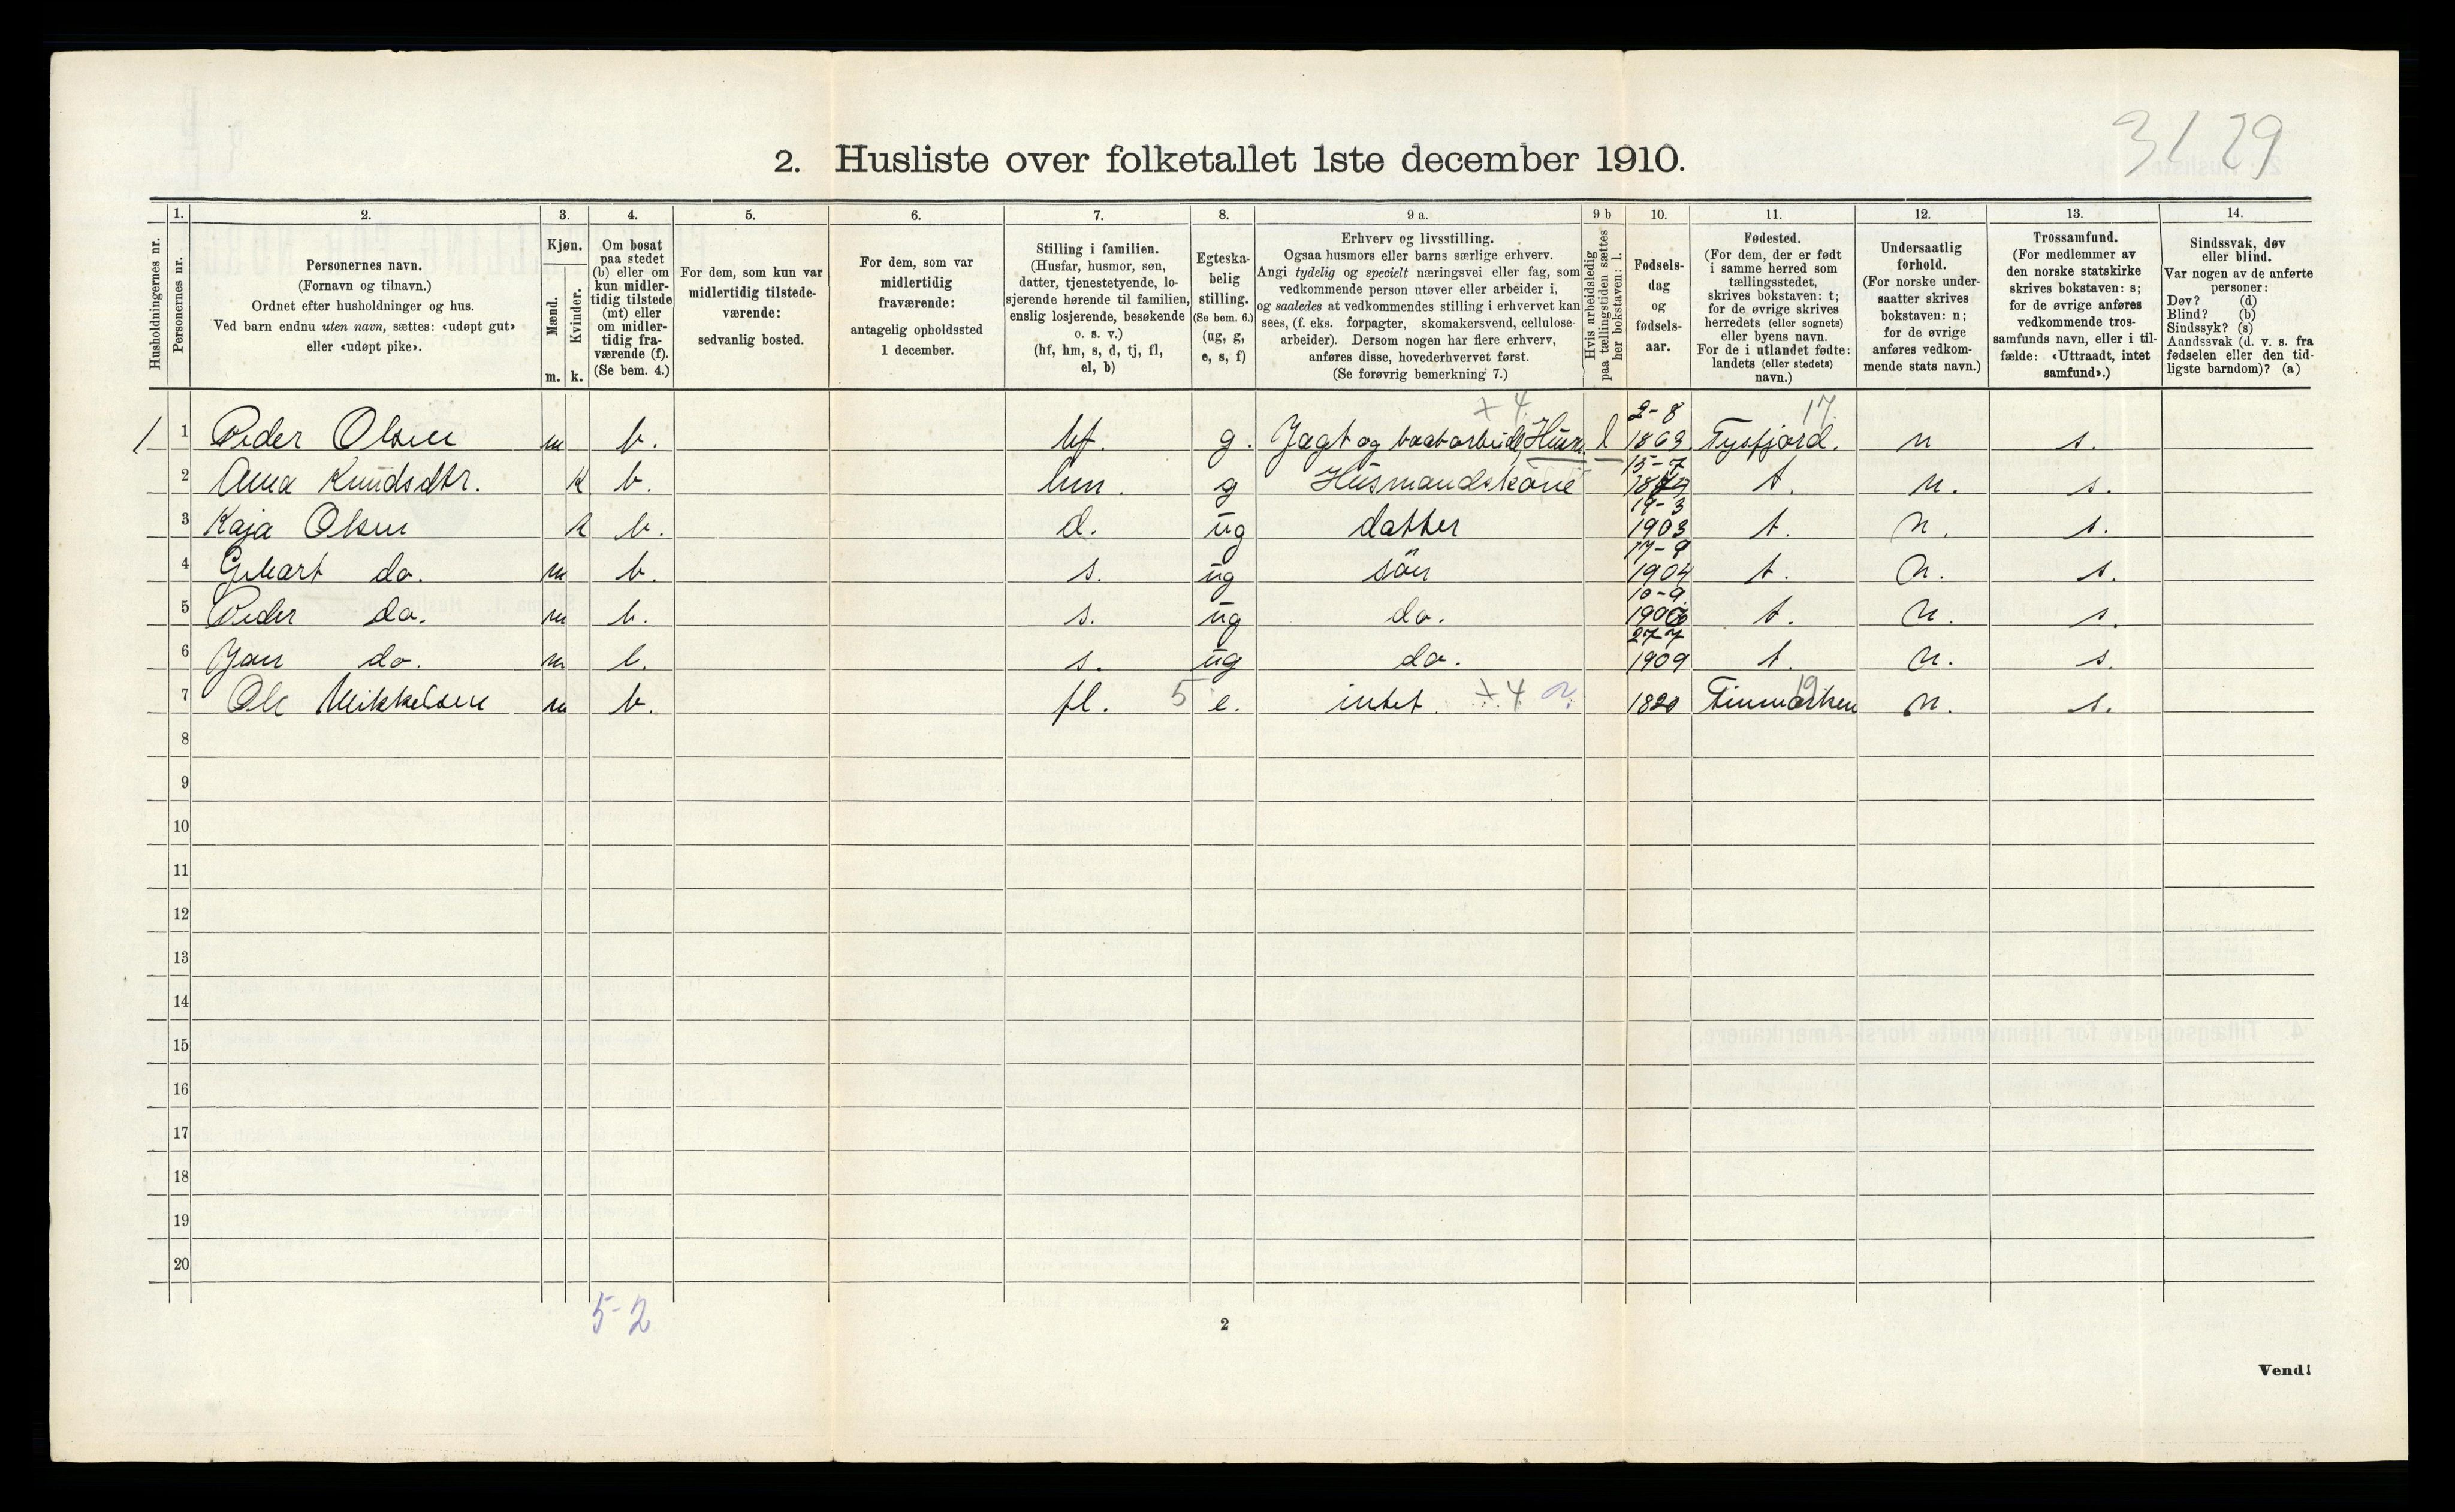 31 29
2. Husliste over folketallet 1ste december 1910.
Husholdningernes nr.
1. Personernes nr.
2. Personernes navn.
(Fornavn og tilnavn.)
Ordnet efter husholdninger og hus.
Ved barn endnu uten navn, sættes: «udøpt gut»
eller «udøpt pike».
3. Kjøn.
Mænd. m.
Kvinder. k.
4. Om bosat
paa stedet
(b) eller om
kun midler-
tidig tilstede
(mt) eller
om midler-
tidig fra-
værende (f).
(Se bem. 4.)
5. For dem, som kun var
midlertidig tilstede-
værende:
sedvanlig bosted.
6. For dem, som var
midlertidig
fraværende:
antagelig opholdssted
1 december.
7. Stilling i familien.
(Husfar, husmor, søn,
datter, tjenestetyende, lo-
sjerende hørende til familien,
enslig losjerende, besøkende
o. s. v.)
(hf, hm, s, d, tj, fl,
el, b)
8. Egteska-
belig
stilling.
(Se bem. 6.)
(ug, g,
e, s, f)
9 a. Erhverv og livsstilling.
Ogsaa husmors eller barns særlige erhverv.
Angi tydelig og specielt næringsvei eller fag, som
vedkommende person utøver eller arbeider i,
og saaledes at vedkommendes stilling i erhvervet kan
sees, (f. eks. forpagter, skomakersvend, cellulose-
arbeider). Dersom nogen har flere erhverv,
anføres disse, hovederhvervet først.
(Se forøvrig bemerkning 7.)
9 b Hvis arbeidsledig
paa tællingstiden sættes
her bokstaven: l.
10. Fødsels-
dag
og
fødsels-
aar.
11. Fødested.
(For dem, der er født
i samme herred som
tællingsstedet,
skrives bokstaven: t;
for de øvrige skrives
herredets (eller sognets)
eller byens navn.
For de i utlandet fødte:
landets (eller stedets)
navn.)
12. Undersaatlig
forhold.
(For norske under-
saatter skrives
bokstaven: n;
for de øvrige
anføres vedkom-
mende stats navn.)
13. Trossamfund.
(For medlemmer av
den norske statskirke
skrives bokstaven: s;
for de øvrige anføres
vedkommende tros-
samfunds navn, eller i til-
fælde: «Uttraadt, intet
samfund».)
14. Sindssvak, døv
eller blind.
Var nogen av de anførte
personer:
Døv? (d)
Blind? (b)
Sindssyk? (s)
Aandssvak (d. v. s. fra
fødselen eller den tid-
ligste barndom)? (a)
1 1 Peder Olsen m b. hf. g. Jagt og baatarbeide, Husm. l 2-8 1863 Tysfjord. 17 n s.
2 Anna Knudsdtr. k b. hm. g Husmandskone 15-7 t. n. s.
3 Kaja Olsen k b. d. ug datter 19-3 1903 t. n. s.
4 do. m b. s. ug sön 17-9 1904 t. n. s.
5 Peder do. m b. s. ug do. 10-9 1906 t. n. s.
6 Jan do. m b. s. ug do. 27-7 1909 t. n. s.
7 Ole Mikkelsen m b. fl. 5 e. intet. +4 1820 Finmarken 19 n. s.
8
9
10
11
12
13
14
15
16
17
18
19
20
5-2
2
Vend!